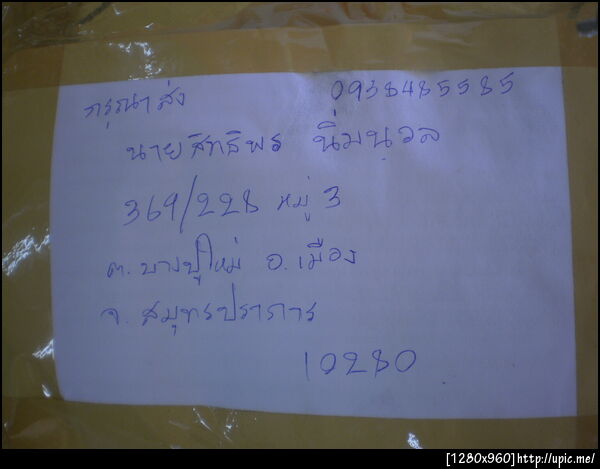 กรุณาส่ง 0938485585
นายสิทธิพร นิ่มนวล
369/228 หมู่ 3
ต. บางปูใหม่ อ. เมือง
จ. สมุทรปราการ
10280
[1280x960]http://upic.me/